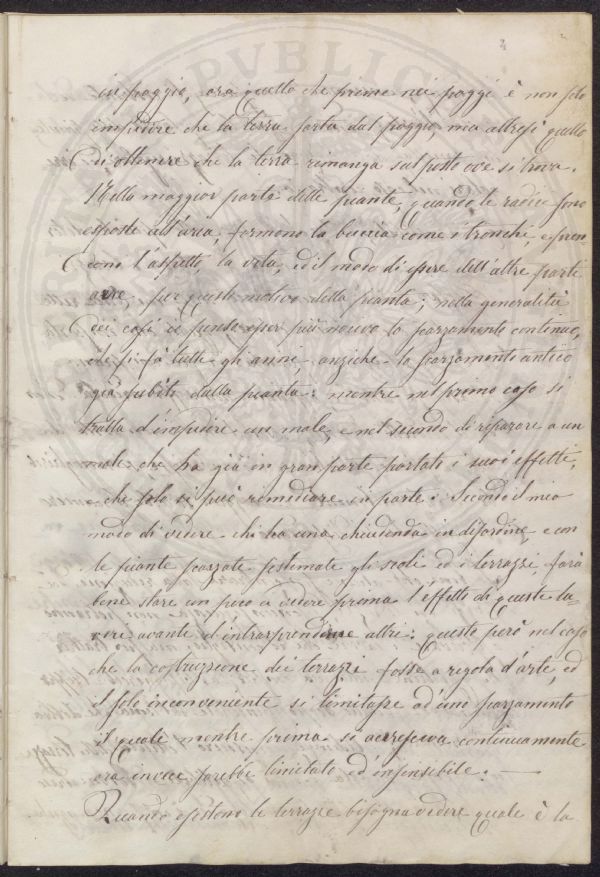 3
in poggio, ora quello che preme nei poggi è non solo
impedire che la terra parta dal poggio ma altresì quello
di ottenere che la terra rimanga sul posto ove si trova.
Nella maggior parte delle piante, quando le radici sono
esposte all'aria, formono la buccia come i tronchi, e pren
dono l'aspetto, la vita, ed il modo di essere dell'altre parte
aeree, per questo motivo della pianta; nella generalità
dei casi io penso esser più nocivo lo scarzamento continuo,
che si fà tutti gli anni, anziche lo scarzamento antico
già subito dalla pianta: mentre nel primo caso si
tratta d'impedire un male, e nel secondo di riparare a un
male che ha già in gran parte portati i suoi effetti,
e che solo si può rimediare in parte. Secondo il mio
modo di vedere chi ha una chiudenda in disordine, e con
le piante scarzate sistemate gli scoli ed i terrazzi, farà
bene stare un poco a vedere prima l'effetto di queste la-
vori avante d'intraprendere altri: questo però nel caso
che la costruzione dei terrazzi fosse a regola d'arte, ed
il solo inconveniente si limitasse ad'uno scarzamento
il quale mentre prima si accresceva continuamente
ora invece sarebbe limitato ed'insensibile. —
Quando esistono le terrazze bisogna vedere quale è la
PVBLIC